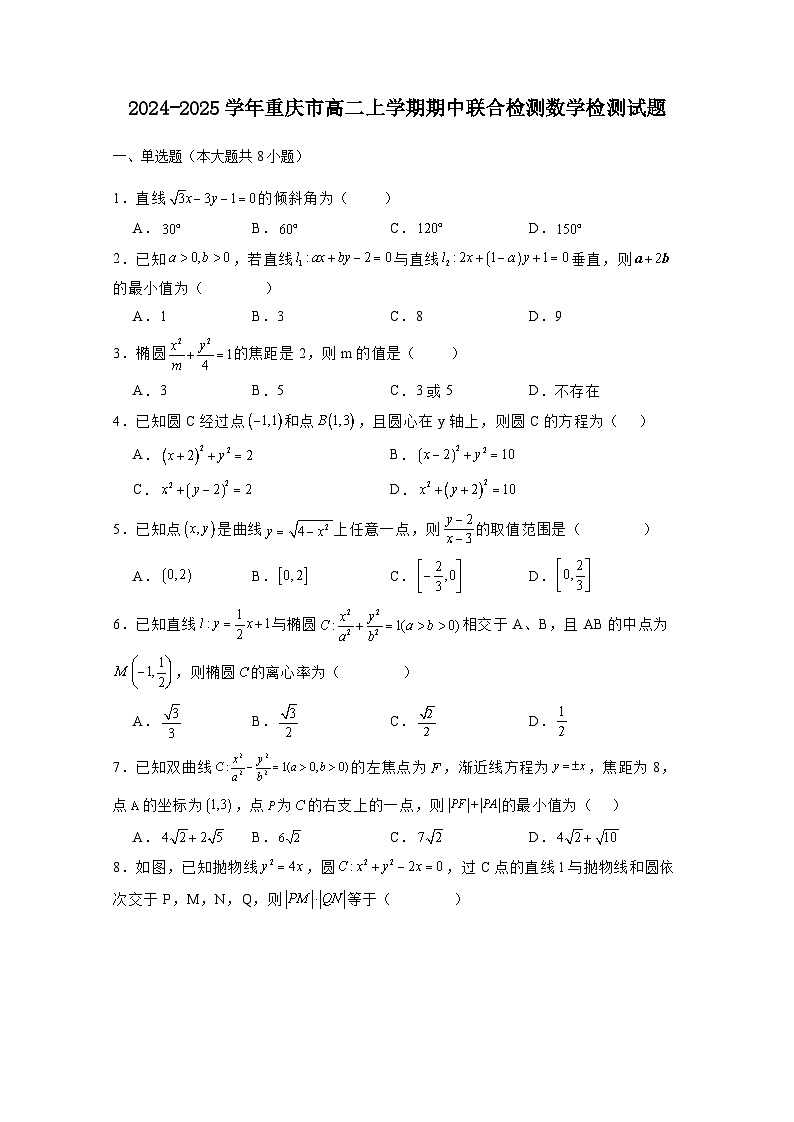 2024-2025 学年重庆市高二上学期期中联合检测数学检测试题
一、单选题（本大题共 8 小题）
1．直线 √3x−3y−1=0 的倾斜角为（　　）
A．30°　B．60°　C．120°　D．150°
2．已知 a>0,b>0，若直线 l₁:ax+by−2=0 与直线 l₂:2x+(1−a)y+1=0 垂直，则 a+2b
的最小值为（　　）
A．1　B．3　C．8　D．9
3．椭圆 x²/m+y²/4=1 的焦距是 2，则 m 的值是（　　）
A．3　B．5　C．3 或 5　D．不存在
4．已知圆 C 经过点 (−1,1) 和点 B(1,3)，且圆心在 y 轴上，则圆 C 的方程为（　　）
A．(x+2)²+y²=2　B．(x−2)²+y²=10
C．x²+(y−2)²=2　D．x²+(y+2)²=10
5．已知点 (x,y) 是曲线 y=√(4−x²) 上任意一点，则 (y−2)/(x−3) 的取值范围是（　　）
A．(0,2)　B．[0,2]　C．[−2/3,0]　D．[0,2/3]
6．已知直线 l:y=1/2x+1 与椭圆 C:x²/a²+y²/b²=1(a>b>0) 相交于 A、B，且 AB 的中点为
M(−1,1/2)，则椭圆 C 的离心率为（　　）
A．√3/3　B．√3/2　C．√2/2　D．1/2
7．已知双曲线 C:x²/a²−y²/b²=1(a>0,b>0) 的左焦点为 F，渐近线方程为 y=±x，焦距为 8，
点 A 的坐标为 (1,3)，点 P 为 C 的右支上的一点，则 |PF|+|PA| 的最小值为（　　）
A．4√2+2√5　B．6√2　C．7√2　D．4√2+√10
8．如图，已知抛物线 y²=4x，圆 C:x²+y²−2x=0，过 C 点的直线 l 与抛物线和圆依
次交于 P，M，N，Q，则 |PM|·|QN| 等于（　　）